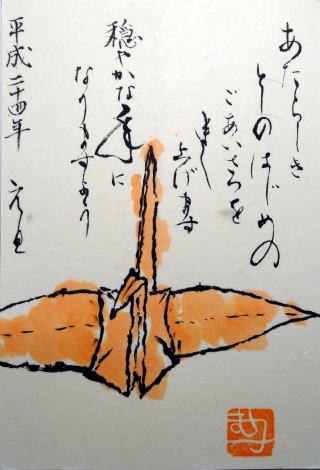 あたらしき
としのはじめの
ごあいさつを
申し
上げます
穏やかな年に
なりますよう
平成二十四年 元旦